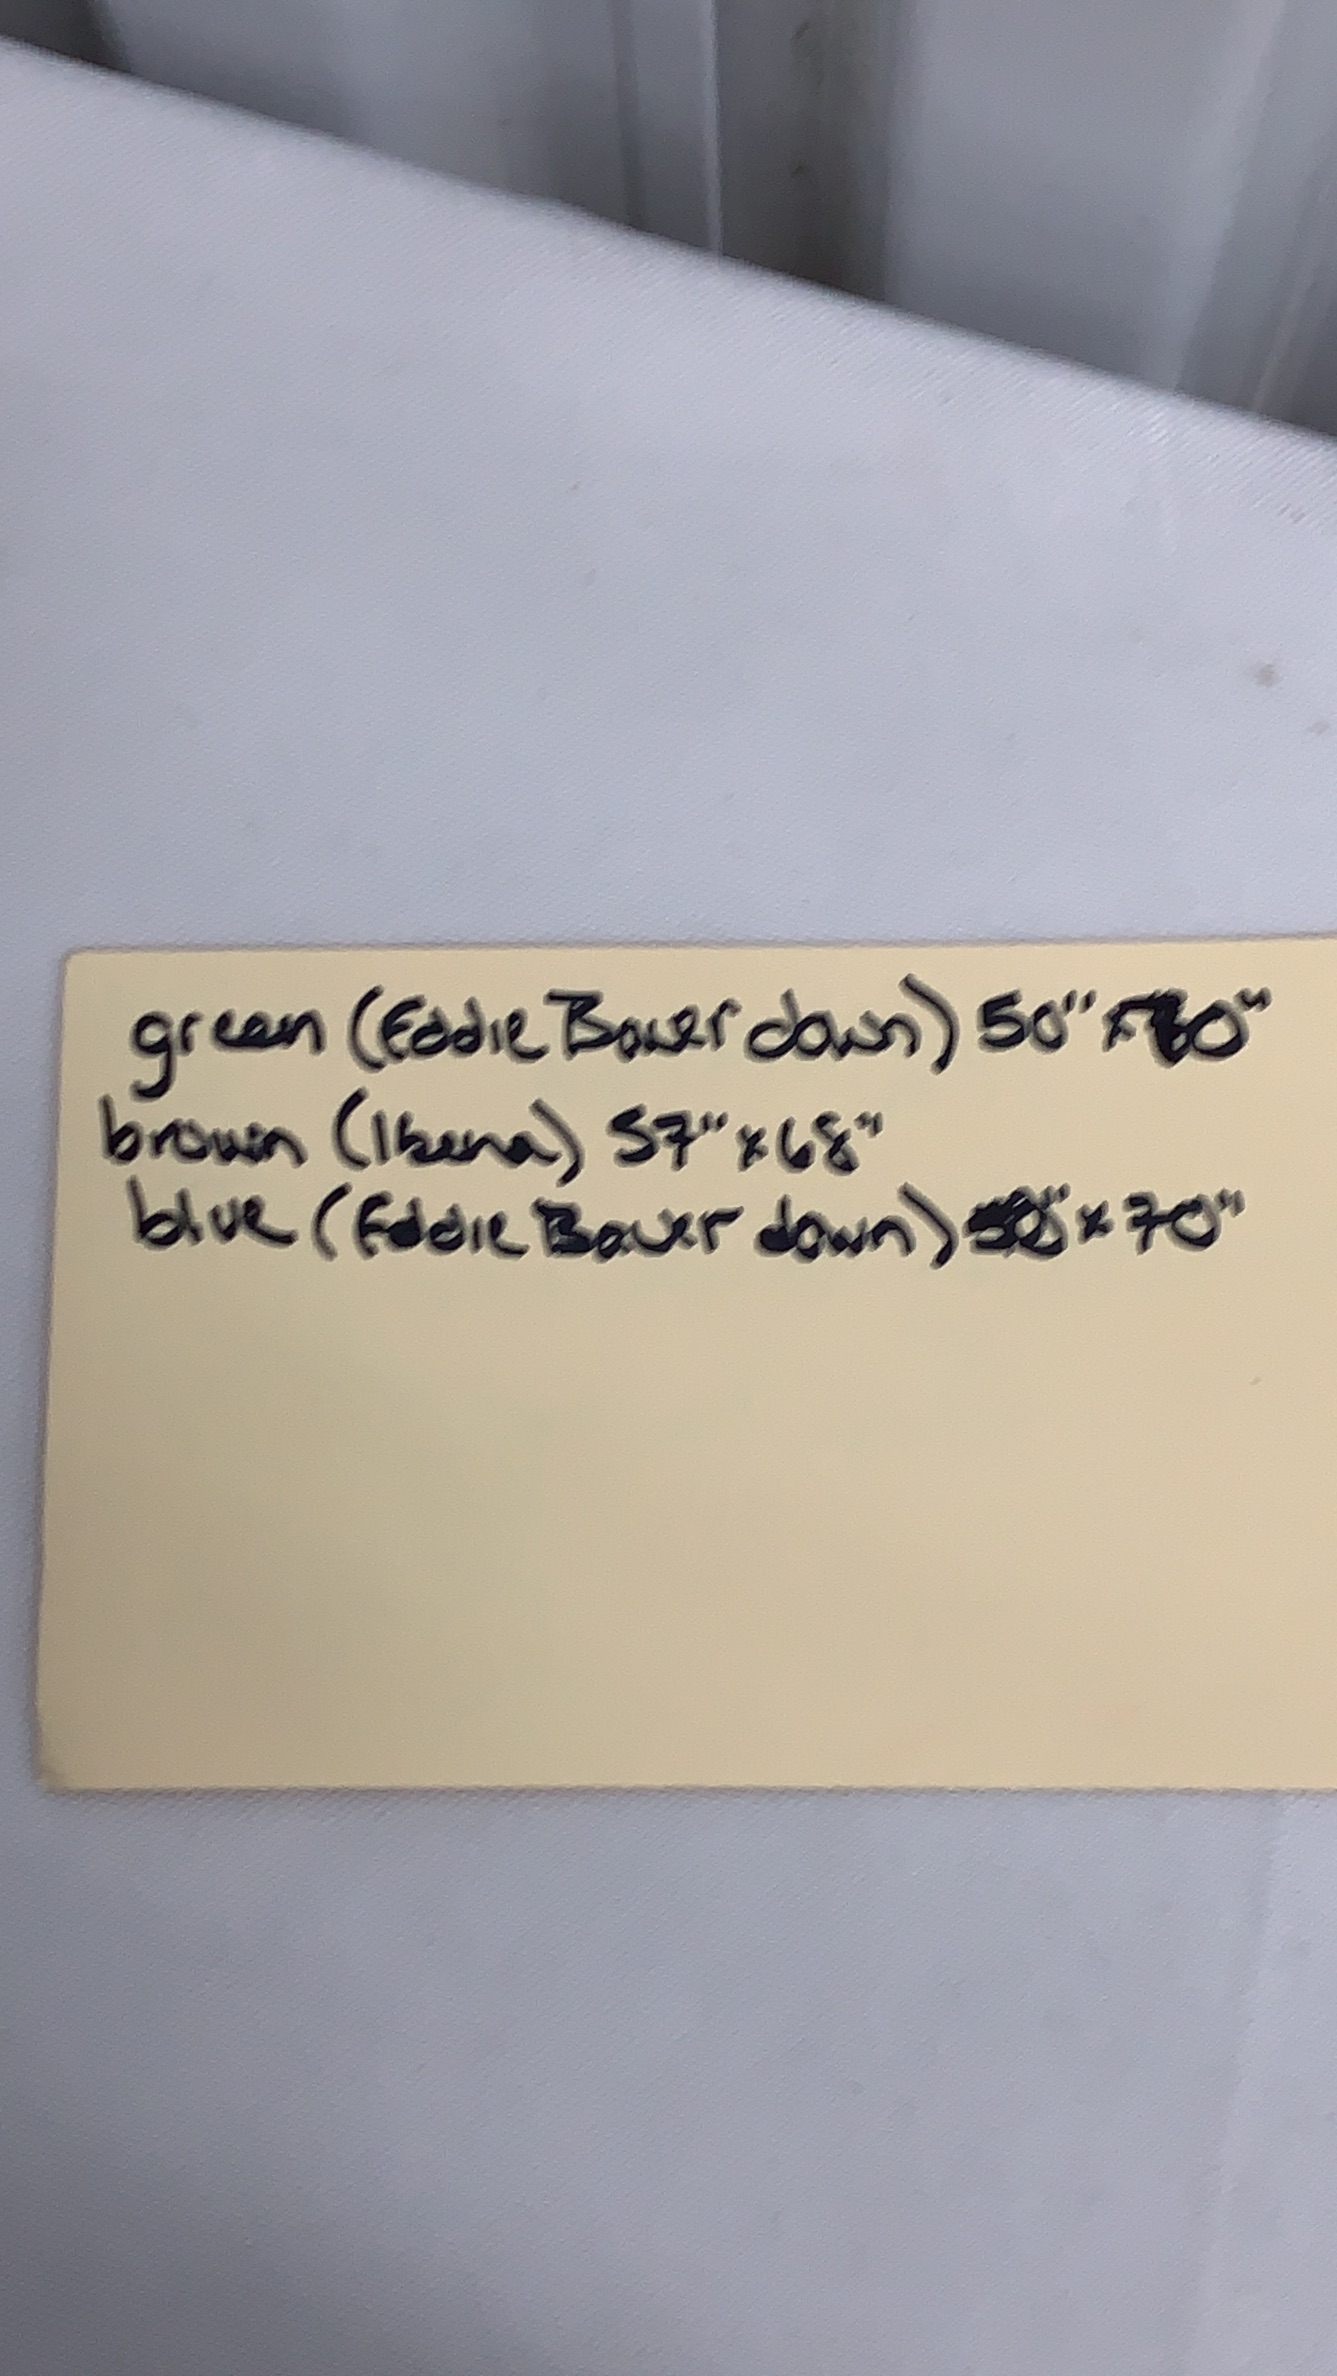 green (Eddie Bauer down) 50" x
brown (Ibena) 57" x 68"
blue (Eddie Bauer down) x 70"